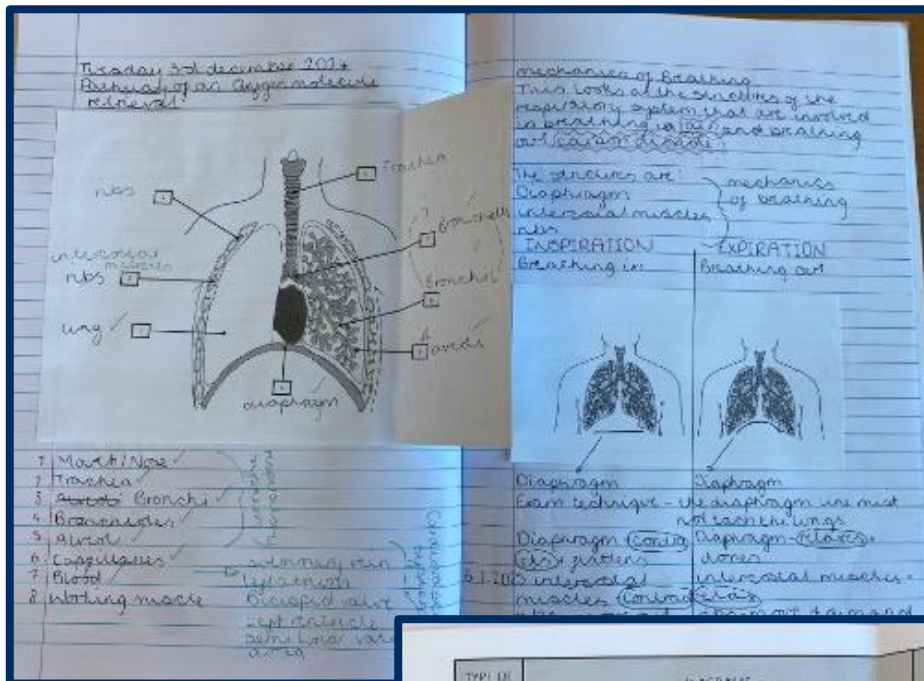 Tuesday 3rd december 2024
Pathway of an Oxygen molecule
retrieval.
Trachea
ribs
intercostal
ribs
lung ✓
Bronchi
alveoli ✓
diaphragm
1 Mouth/Nose ✓
2 Trachea ✓
3 Bronchi ✓
4 Bronchioles ✓
5 alveoli ✓
6 Capillaries ✓
7 Blood ✓
8 Working muscle
pulmonary vein
left atrium
Bicuspid valve
Left ventricle
Semi lunar valve
aorta
mechanics of Breathing
This looks at the structures of the
respiratory system that are involved
in breathing in air and breathing
out carbon dioxide.
The structures are:
Diaphragm
intercostal muscles
ribs
mechanics
of breathing
INSPIRATION
Breathing in
EXPIRATION
Breathing out
Diaphragm
Diaphragm
Exam technique - the diaphragm line must
not touch the lungs
Diaphragm contra
cts + flattens
intercostal
muscles contract
Diaphragm - relaxes +
domes
intercostal muscles -
relax
TYPE OF